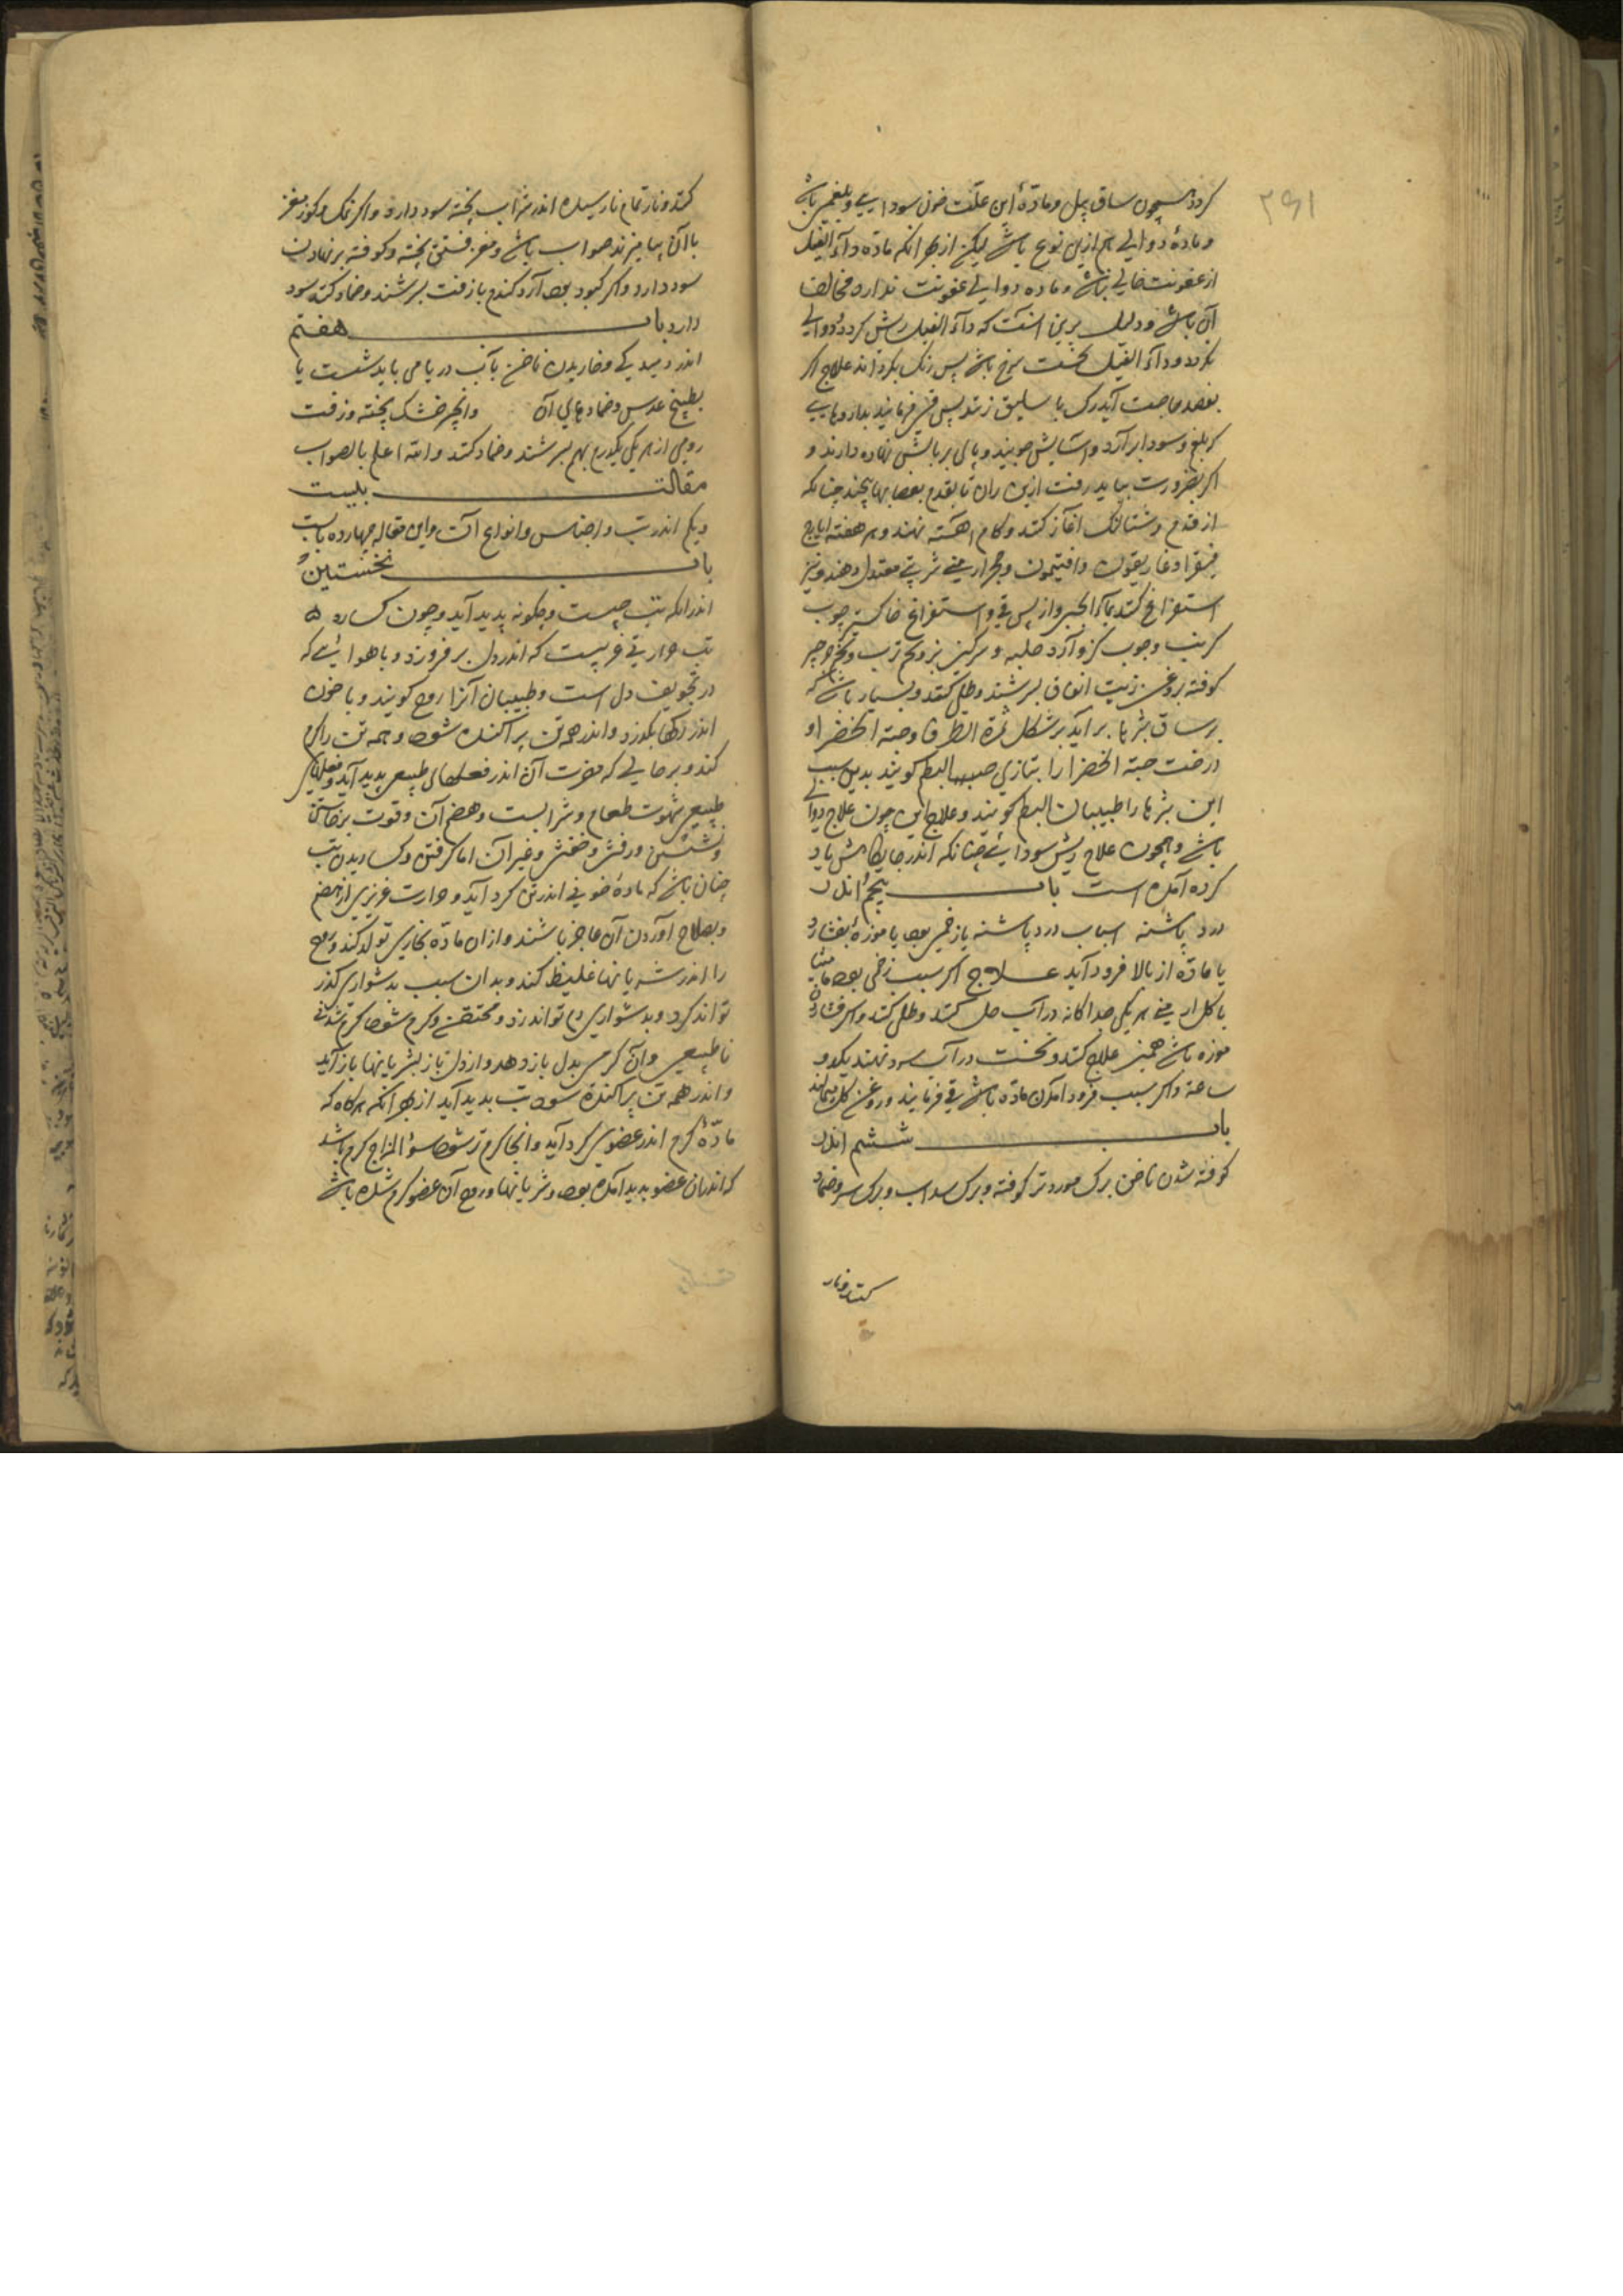 ۲۹۱
گردد همچون ساق پیل و مادّهٔ این علّت خون سودایی و بلغمی باشد
و مادهٔ دوالی هم ازین نوع باشد لیکن از بهر انکه مادّه داء الفیل
از عفونت خالی نباشد و ماده دوالی عفونت ندارد مخالف
آن باشد و دلیل برین انست که داء الفیل ریش گردد و دوالی
نگردد و داء الفیل نخست سرخ باشد پس رنگ بگرداند علاج اگر
بفصد حاجت آید رگ باسلیق زنند پس قی فرمایند بداروهایی
که بلغم و سودا برآرد و آسایش جویند و پای بر بالش نهاده دارند و
اگر بضرورت بباید رفت ازین ران تا بقدم بعصابها بپیچند چنانکه
از قدم و شتالنگ آغاز کنند و گام آهسته نهند و هر هفته ایارج
فیقرا و غاریقون و افتیمون و حجر ارمنی شربتی معتدل دهند و نیز
استفراغ کنند بماء الجبن و از پس قی و استفراغ خاکستر چوب
کرنب و چوب گز و آرد حلبه و سرگین بز و تخم ترب و تخم جرجر
کوفته بروغن زیت انفاق بسرشند و طلی کنند و بسیار باشد که
بر ساق بثرها برآید بر شکل ثمرة الطرفا و حبة الخضرا و
درخت حبة الخضرا را بتازی البطم گویند بدین سبب
این بثرها را طبیبان البطم گویند و علاج این چون علاج دوالی
باشد و همچون علاج ریش سودائی چنانکه اندر جایگاهش یاد
کرده آمده است باب پنجم اندر
درد پاشنه اسباب درد پاشنه یا زخمی بود یا موزه بفشارد
یا مادّه از بالا فرود آید علاج اگر سبب زخمی بود مامیثا
با گل ارمنی هر یکی جداگانه در آب حل کنند و طلی کنند و اگر فشاردن
موزه باشد همین علاج کنند و نخست در آب سرد نهند یک دو
ساعة و اگر سبب فرود آمدن مادّه باشد قی فرمایند و روغن گل بمالند
باب ششم اندر
کوفته شدن ناخن برگ مورد تر کوفته و برگ سداب و برگ سرو ضماد
کنند و نار
کنند و نار تمام نارسیده اندر شراب پخته سود دارد و اگر نمک و کوز مغز
با آن بیامیزند صواب باشد و مغز فستق پخته و کوفته بر نهادن
سود دارد و اگر کبود بود آرد گندم با زفت بسرشند و ضماد کنند سود
دارد باب هفتم
اندر و خاریدن ناخن بآب دریا می باید شست یا
بطبیخ عدس و ضمادهای آن و انجیر خشک پخته و زفت
رومی از هر یکی یکدرم بهم بسرشند و ضماد کنند و الله اعلم بالصواب
مقالت بیست
و یکم اندر تب و اجناس و انواع آن و این مقاله چهارده بابست
باب نخستین
اندر انکه تب چیست و چگونه پدید آید و چون گسارد
تب حرارتی غریبست که اندر دل برفروزد و با هوائی که
در تجویف دل است و طبیبان آنرا روح گویند و با خون
اندر رگها بگذرد و اندر همه تن پراکنده شود و همه تن را گرم
کند و بر حالی که مضرت آن اندر فعلهای طبیعی پدید آید و فعلهای
طبیعی شهوت طعام و شرابست و هضم آن و قوت برخاستن
و نشستن و رفتن و خفتن و غیر آن اما گرفتن و گساریدن تب
چنان باشد که مادهٔ خونی اندر تن گرد آید و حرارت غریزی از هضم
و بصلاح آوردن آن عاجز باشند و از ان مادّه بخاری تولد کند و روح
را اندر شریانها غلیظ کند و بدان سبب بدشواری گذر
تواند کرد و بدشواری دم تواند زد و محتقن و گرم شود گرم شدنی
ناطبیعی و آن گرمی بدل باز دهد و از دل باز بشریانها باز آید
و اندر همه تن پراکنده شود تب بدید آید از بهر آنکه هرگاه که
مادّهٔ گرم اندر عضوی گرد آید و انجا گرم تر شود سؤ المزاج گرم باشد
که اندران عضو بدید آمده بود و شریانها و روح آن عضو گرم شده باشد